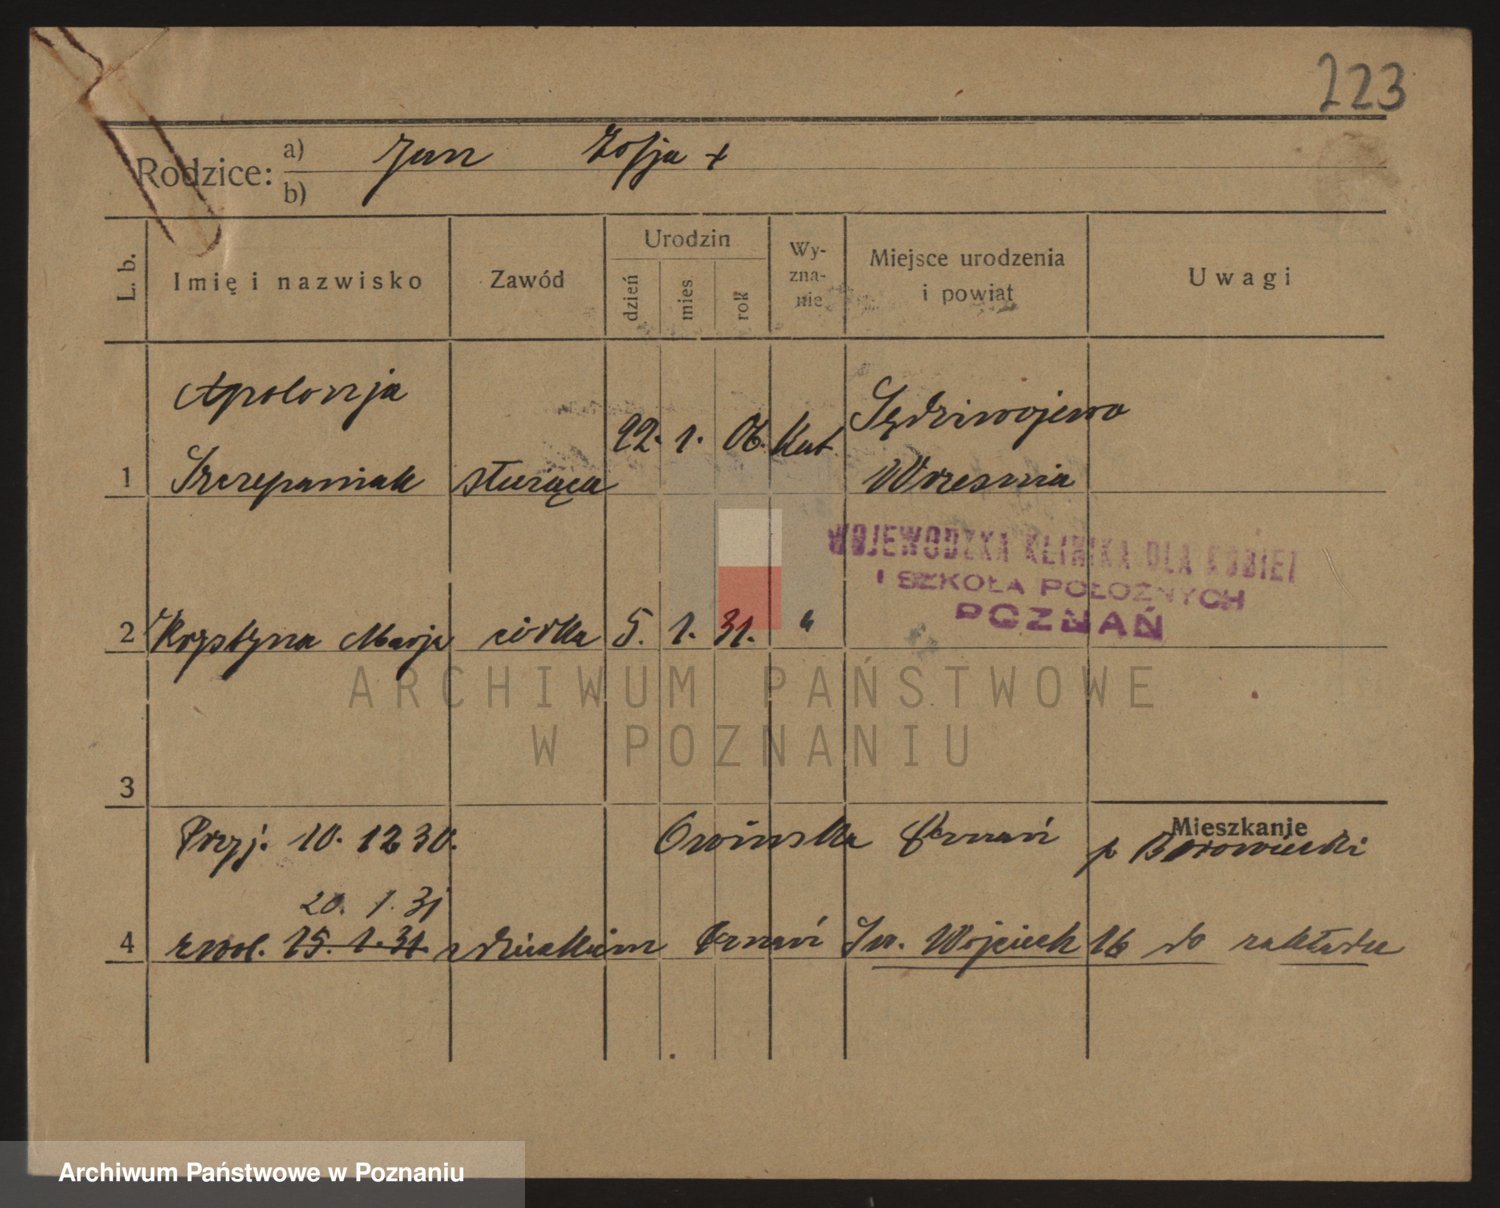 223
Rodzice: a) Jan Zofja +
b)
L. b. Imię i nazwisko Zawód Urodzin dzień mies rok Wy-zna-nie Miejsce urodzenia i powiat Uwagi
Apolonja
1 Szczepaniak służąca 22. 1. 06. Kat. Sędziwojewo
Września
WOJEWÓDZKA KLINIKA DLA KOBIET
I SZKOŁA POŁOŻNYCH
POZNAŃ
2 Krystyna Marja córka 5. 1. 31. "
ARCHIWUM PAŃSTWOWE
W POZNANIU
3
Mieszkanie
Przyj. 10. 12 30. Owińska Poznań p Borowiecki
20. 1. 31
4 zwol. 15. 1. 31 z dzieckiem Poznań Św. Wojciech 16 do zakładu
Archiwum Państwowe w Poznaniu